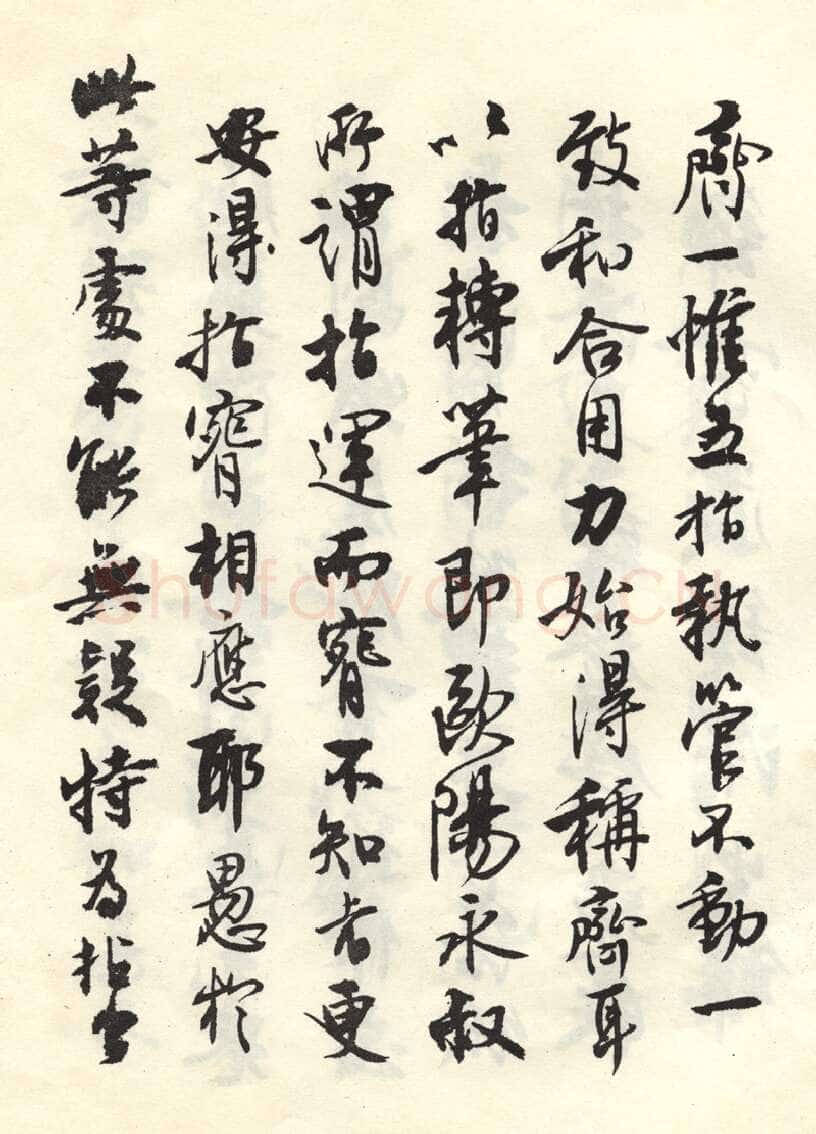 齊一惟五指執管不動一
致和合用力始得稱齊耳
以指轉筆即歐陽永叔
所謂指運而腕不知者更
安得指腕相應耶愚於
此等處不能無疑特為拈出
shufawang.cn